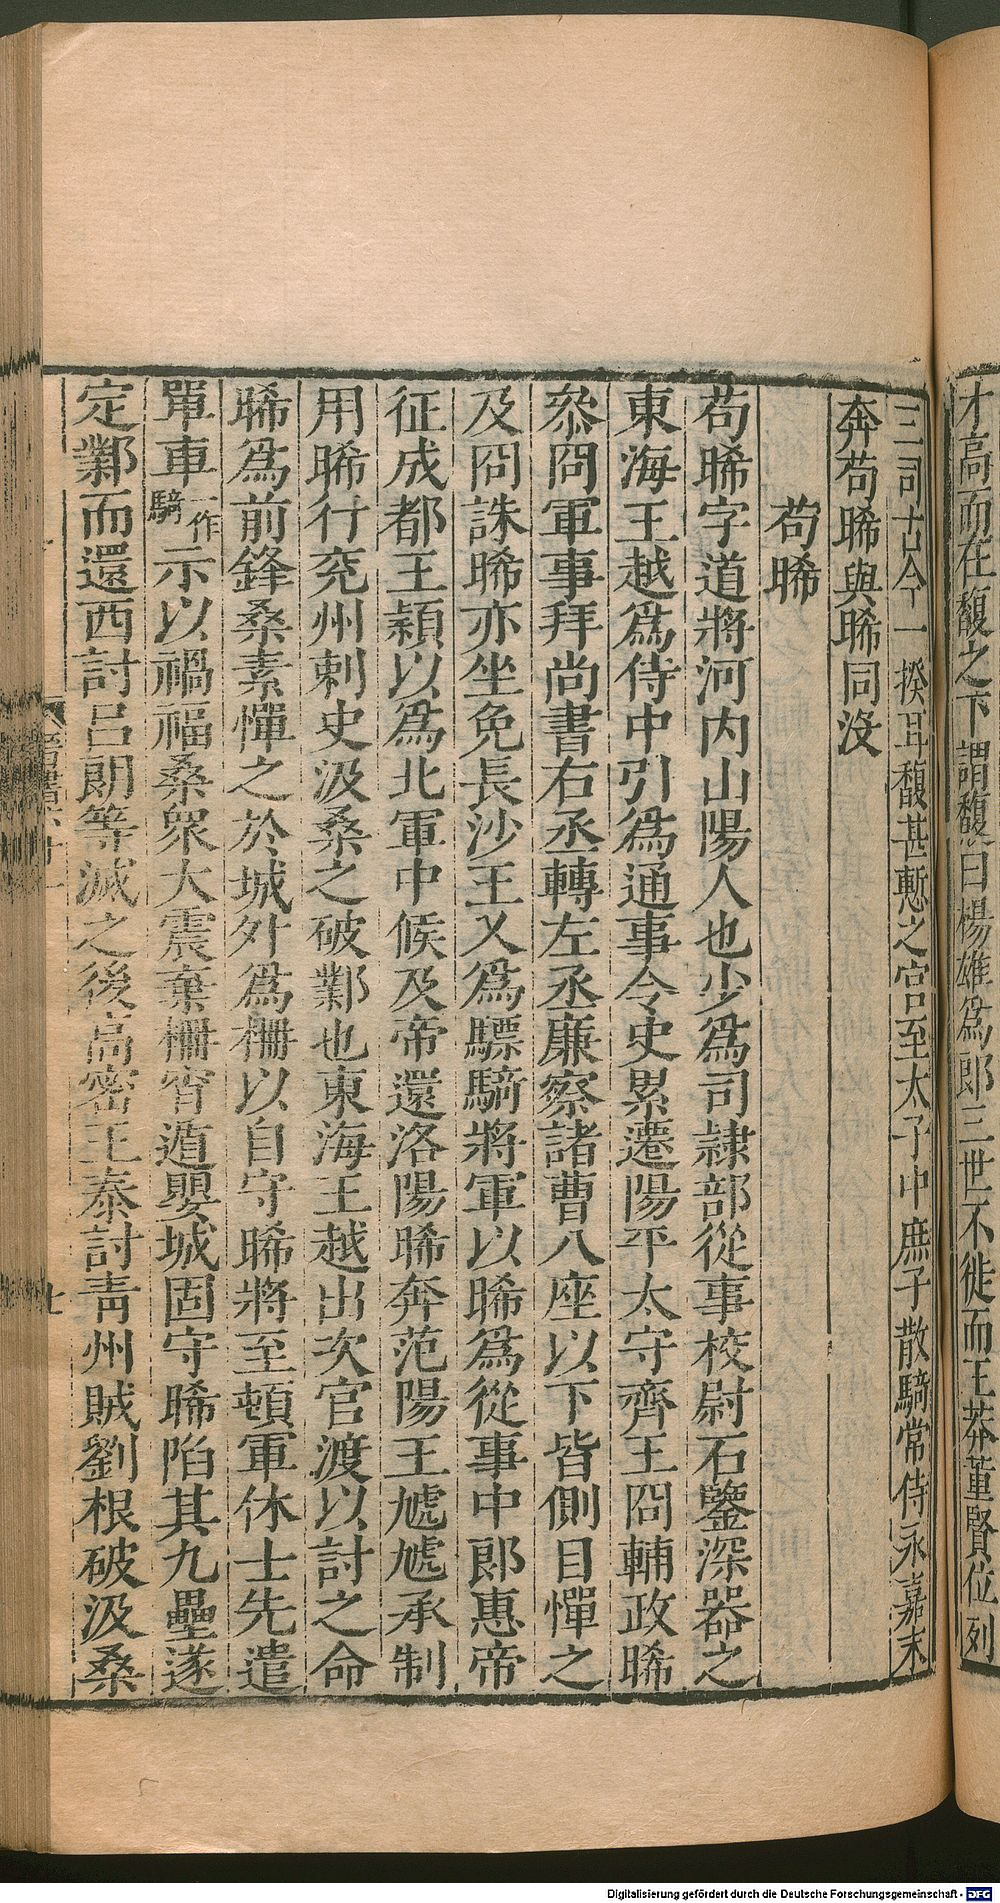 才高而在馥之下謂馥曰楊雄爲郎三世不徙而王莽董賢位列
三司古今一揆耳馥甚慙之官至太子中庶子散騎常侍永嘉末
奔苟晞與晞同沒
苟晞
苟晞字道將河内山陽人也少爲司隷部從事校尉石鑒深器之
東海王越爲侍中引爲通事令史累遷陽平太守齊王冏輔政晞
叅冏軍事拜尚書右丞轉左丞廉察諸曹八座以下皆側目憚之
及冏誅晞亦坐免長沙王乂爲驃騎將軍以晞爲從事中郎惠帝
征成都王穎以爲北軍中候及帝還洛陽晞奔范陽王虓虓承制
用晞行兖州刺史汲桑之破鄴也東海王越出次官渡以討之命
晞爲前鋒桑素憚之於城外爲柵以自守晞將至頓軍休士先遣
單車一作騎示以禍福桑衆大震棄柵宵遁嬰城固守晞陷其九壘遂
定鄴而還西討呂朗等滅之後高密王泰討青州賊劉根破汲桑
Digitalisierung gefördert durch die Deutsche Forschungsgemeinschaft - DFG